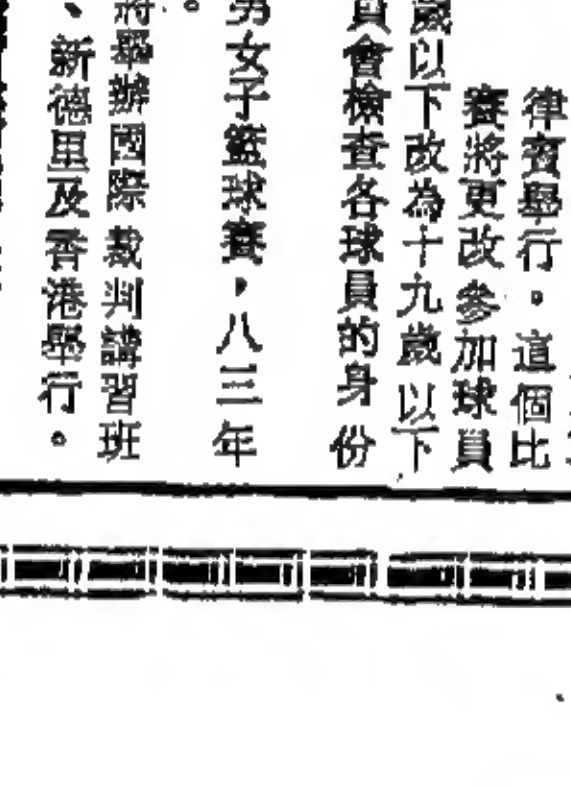 律賓舉行。這個比
賽將更改參加球員
歲以下改為十九歲以下
員會檢查各球員的身份
男女子籃球賽，八三年
。
將舉辦國際裁判講習班
、新德里及香港舉行。